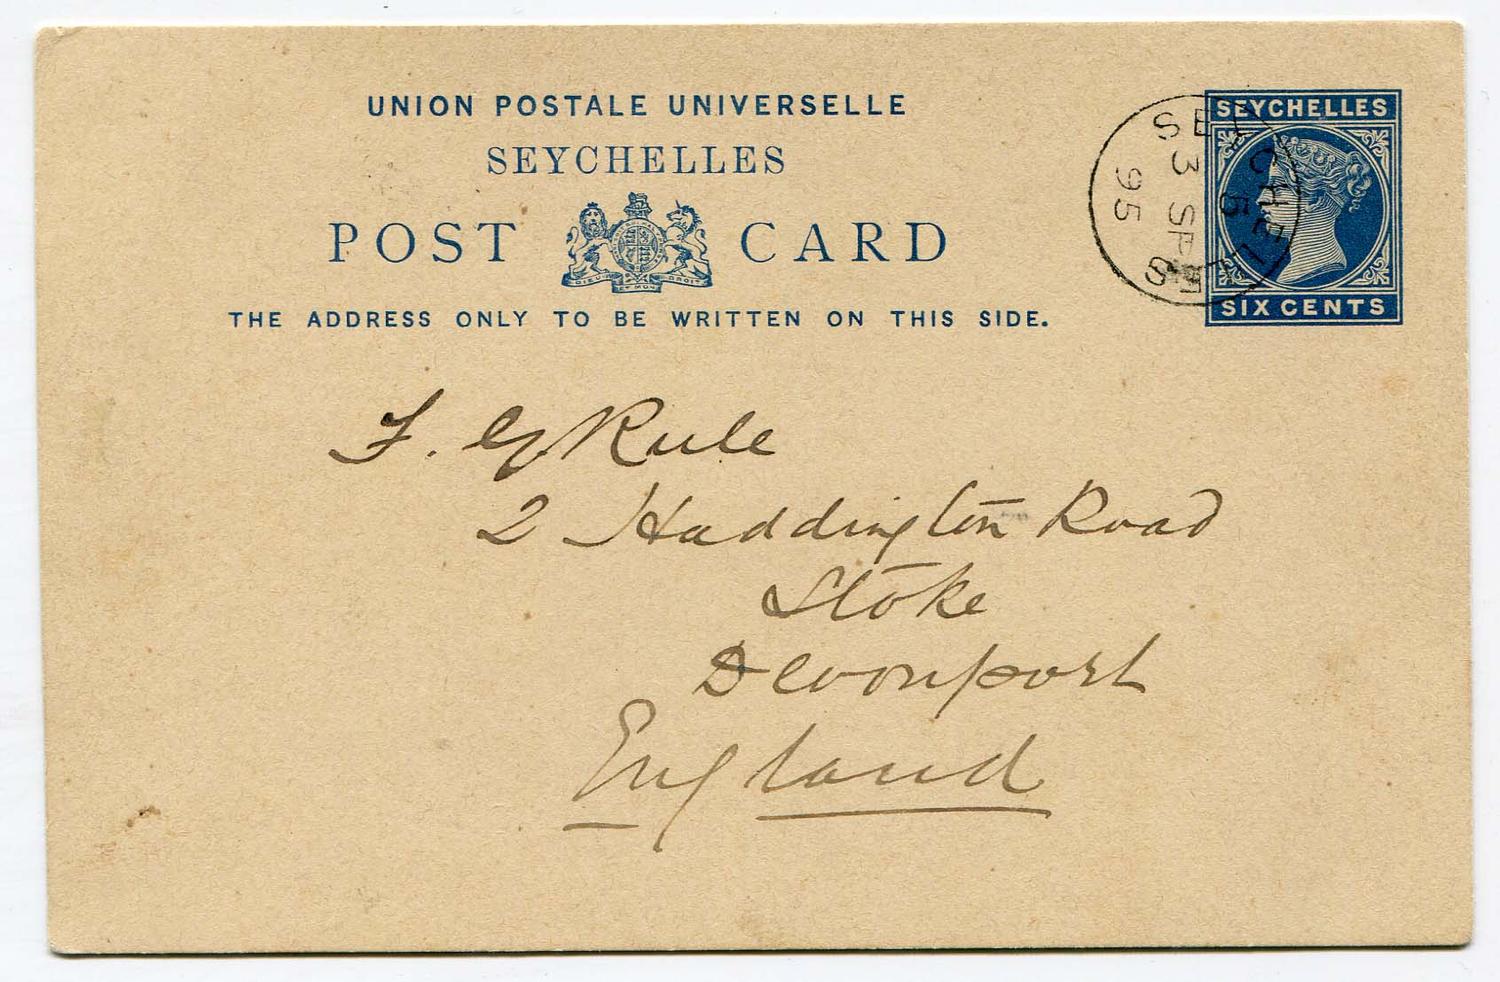 UNION POSTALE UNIVERSELLE
SEYCHELLES
POST CARD
DIEU ET MON DROIT
THE ADDRESS ONLY TO BE WRITTEN ON THIS SIDE.
SEYCHELLES
SIX CENTS
SEYCHELLES
5
3 SP
95
F. G Rule
2 Haddington Road
Stoke
Devonport
England